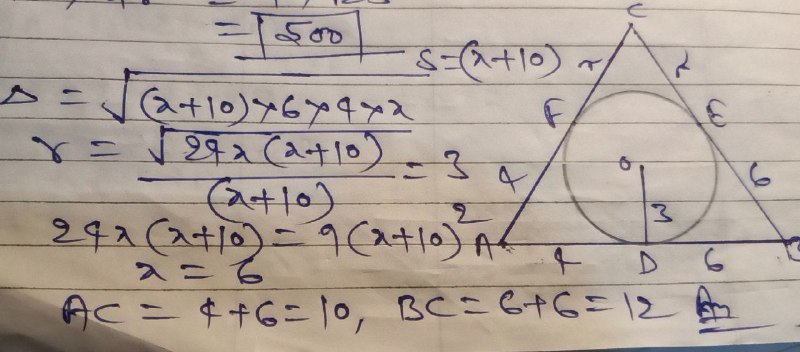 = 500
S=(x+10)
Δ = √(x+10)×6×4×x
r = √24x(x+10) / (x+10) = 3
24x(x+10) = 9(x+10)²
x = 6
AC = 4+6=10, BC=6+6=12 Ans
C
x x
F E
4 6
O
3
A 4 D 6 B